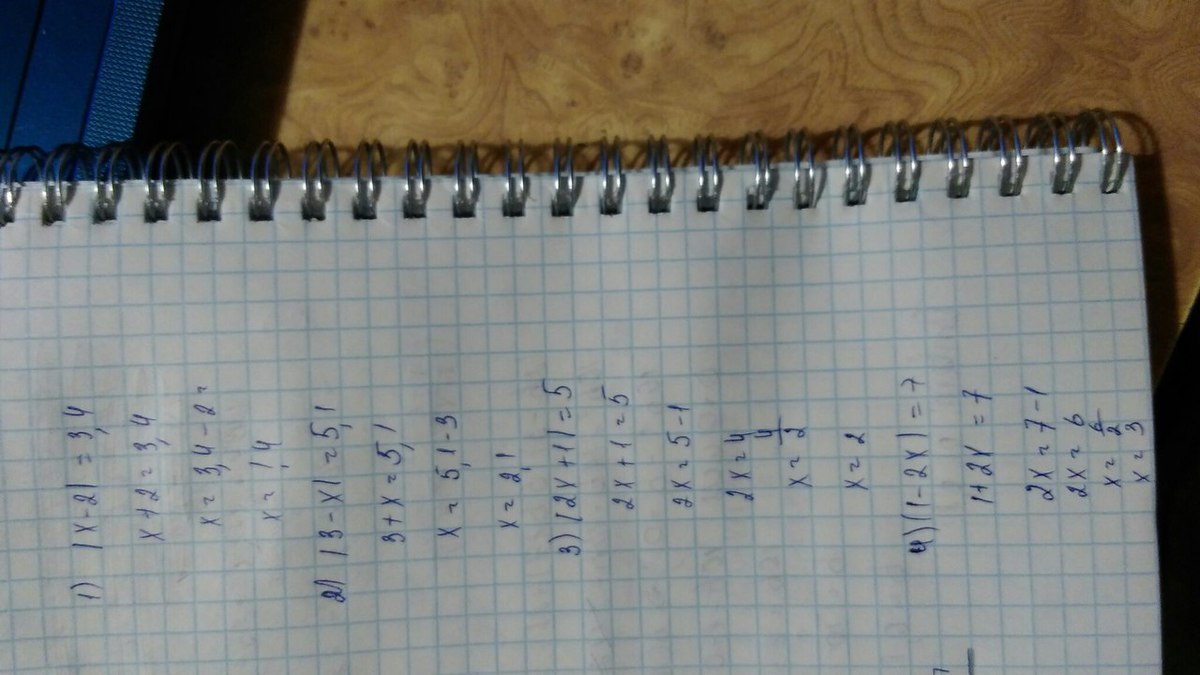 1) |x-2|=3,4
x+2=3,4
x=3,4-2=
x=1,4
2) |3-x|=5,1
3+x=5,1
x=5,1-3
x=2,1
3) |2x+1|=5
2x+1=5
2x=5-1
2x=4
x=4/2
x=2
4) |1-2x|=7
1+2x=7
2x=7-1
2x=6
x=6/2
x=3